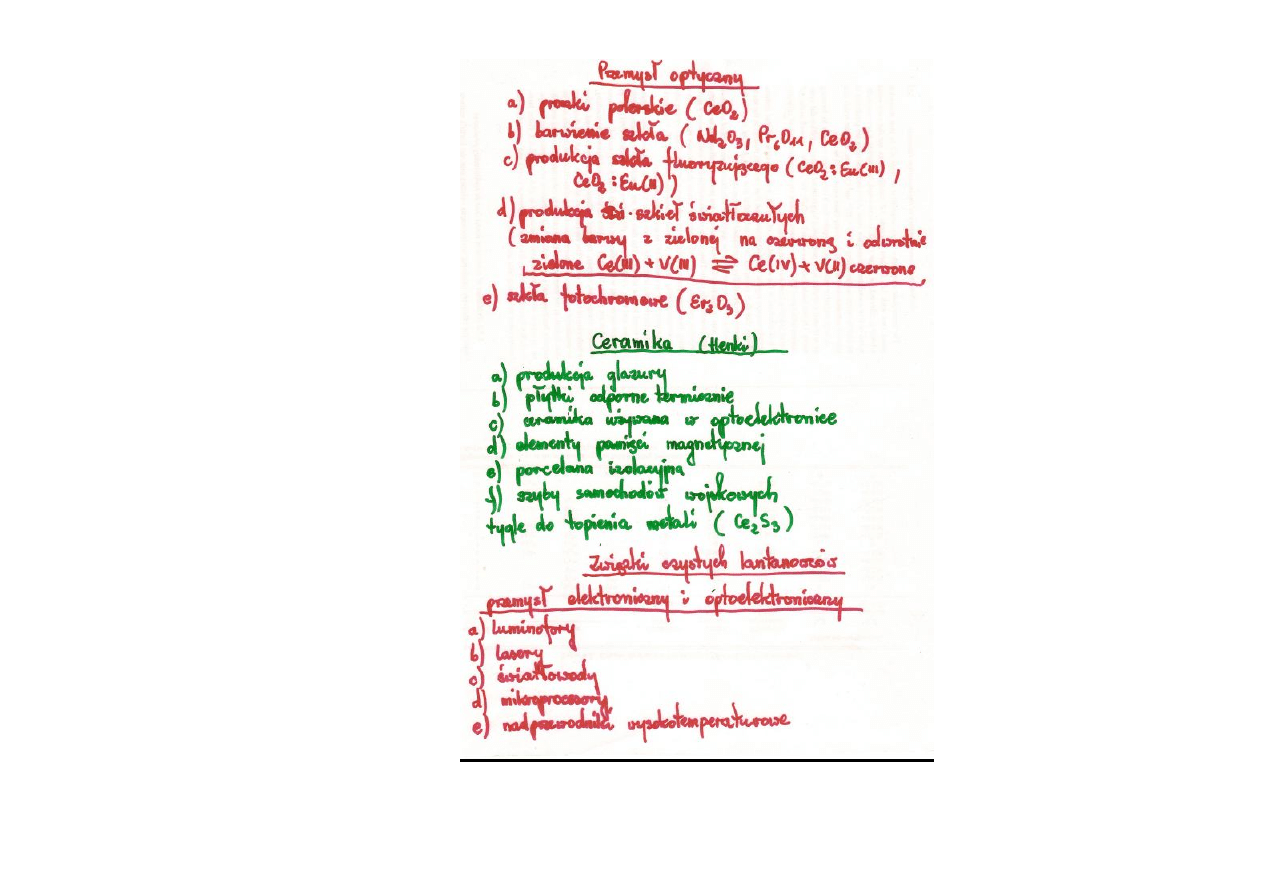 Przemysł optyczny
a) proszki polerskie (CeO₂)
b) barwienie szkła (Nd₂O₃, Pr₆O₁₁, CeO₂)
c) produkcja szkła fluoryzującego (CeO₂:Eu(III),
CeO₂:Eu(II))
d) produkcja szkieł światłoczułych
(zmiana barwy z zielonej na czerwoną i odwrotnie
zielone Ce(III) + V(III) ⇌ Ce(IV) + V(II) czerwone
e) szkła fotochromowe (Er₂O₃)
Ceramika (tlenki)
a) produkcja glazury
b) płytki odporne termicznie
c) ceramika używana w optoelektronice
d) elementy pamięci magnetycznej
e) porcelana izolacyjna
f) szyby samochodów wojskowych
tygle do topienia metali (Ce₂S₃)
Związki czystych lantanowców
przemysł elektroniczny i optoelektroniczny
a) luminofory
b) lasery
c) światłowody
d) mikroprocesory
e) nadprzewodniki wysokotemperaturowe